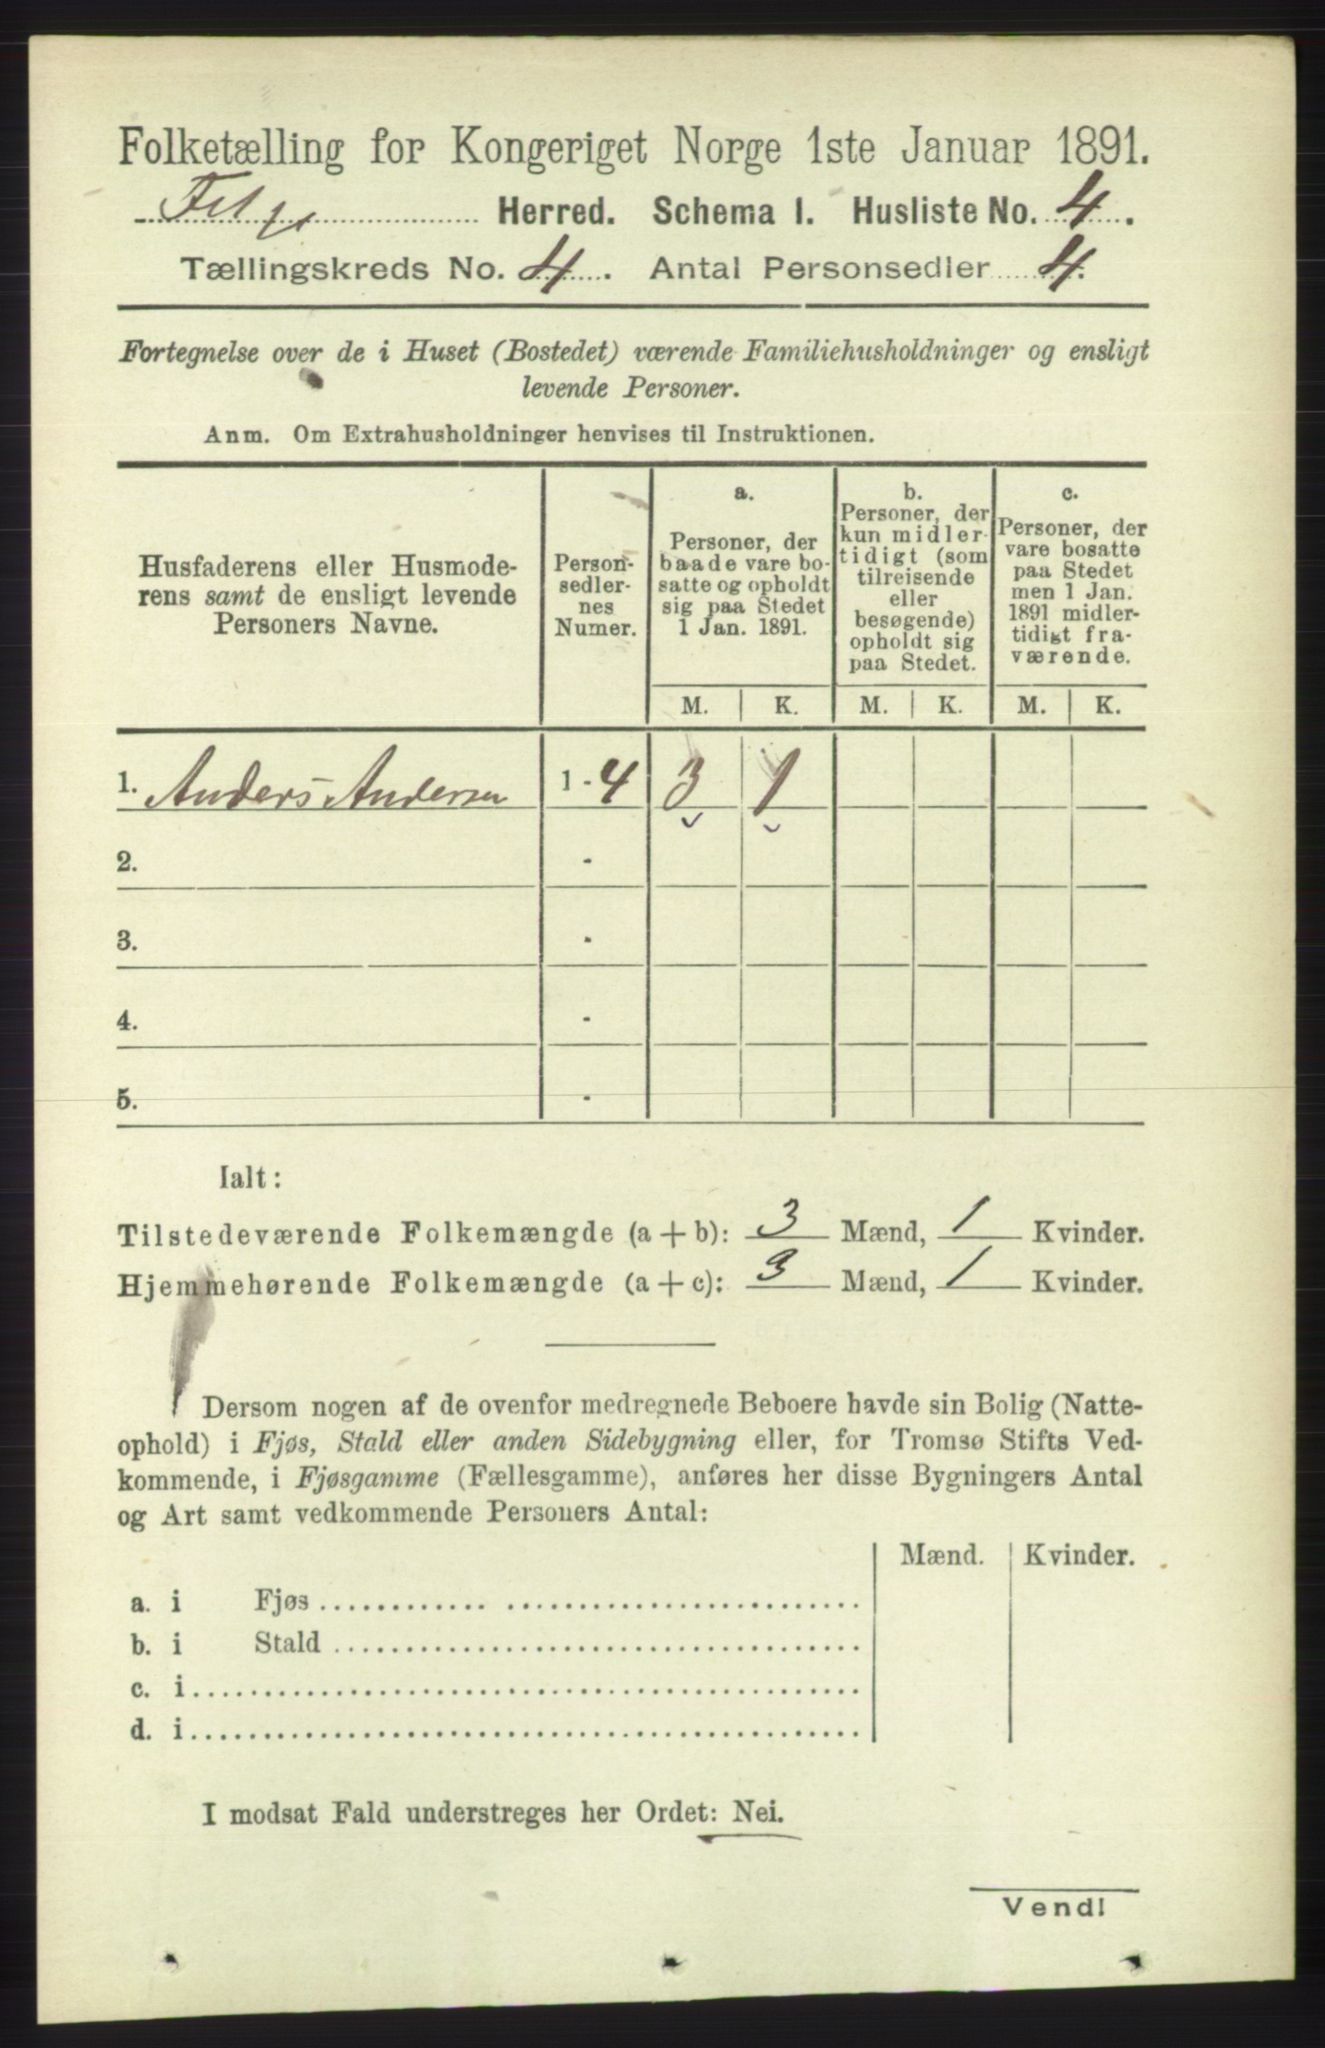 Folketælling for Kongeriget Norge 1ste Januar 1891.
Fitje Herred. Schema I. Husliste No. 4.
Tællingskreds No. 4. Antal Personsedler 4.
Fortegnelse over de i Huset (Bostedet) værende Familiehusholdninger og ensligt
levende Personer.
Anm. Om Extrahusholdninger henvises til Instruktionen.
Husfaderens eller Husmode-
rens samt de ensligt levende
Personers Navne.
Person-
sedler-
nes
Numer.
a.
Personer, der
baade vare bo-
satte og opholdt
sig paa Stedet
1 Jan. 1891.
b.
Personer, der
kun midler-
tidigt (som
tilreisende
eller
besøgende)
opholdt sig
paa Stedet.
c.
Personer, der
vare bosatte
paa Stedet
men 1 Jan.
1891 midler-
tidigt fra-
værende.
M. K. M. K. M. K.
1. Anders Andersen 1 - 4 3 1
2. -
3. -
4. -
5. -
Ialt:
Tilstedeværende Folkemængde (a + b): 3 Mænd, 1 Kvinder.
Hjemmehørende Folkemængde (a + c): 3 Mænd, 1 Kvinder.
Dersom nogen af de ovenfor medregnede Beboere havde sin Bolig (Natte-
ophold) i Fjøs, Stald eller anden Sidebygning eller, for Tromsø Stifts Ved-
kommende, i Fjøsgamme (Fællesgamme), anføres her disse Bygningers Antal
og Art samt vedkommende Personers Antal:
Mænd. Kvinder.
a. i Fjøs
b. i Stald
c. i
d. i
I modsat Fald understreges her Ordet: Nei.
Vend!